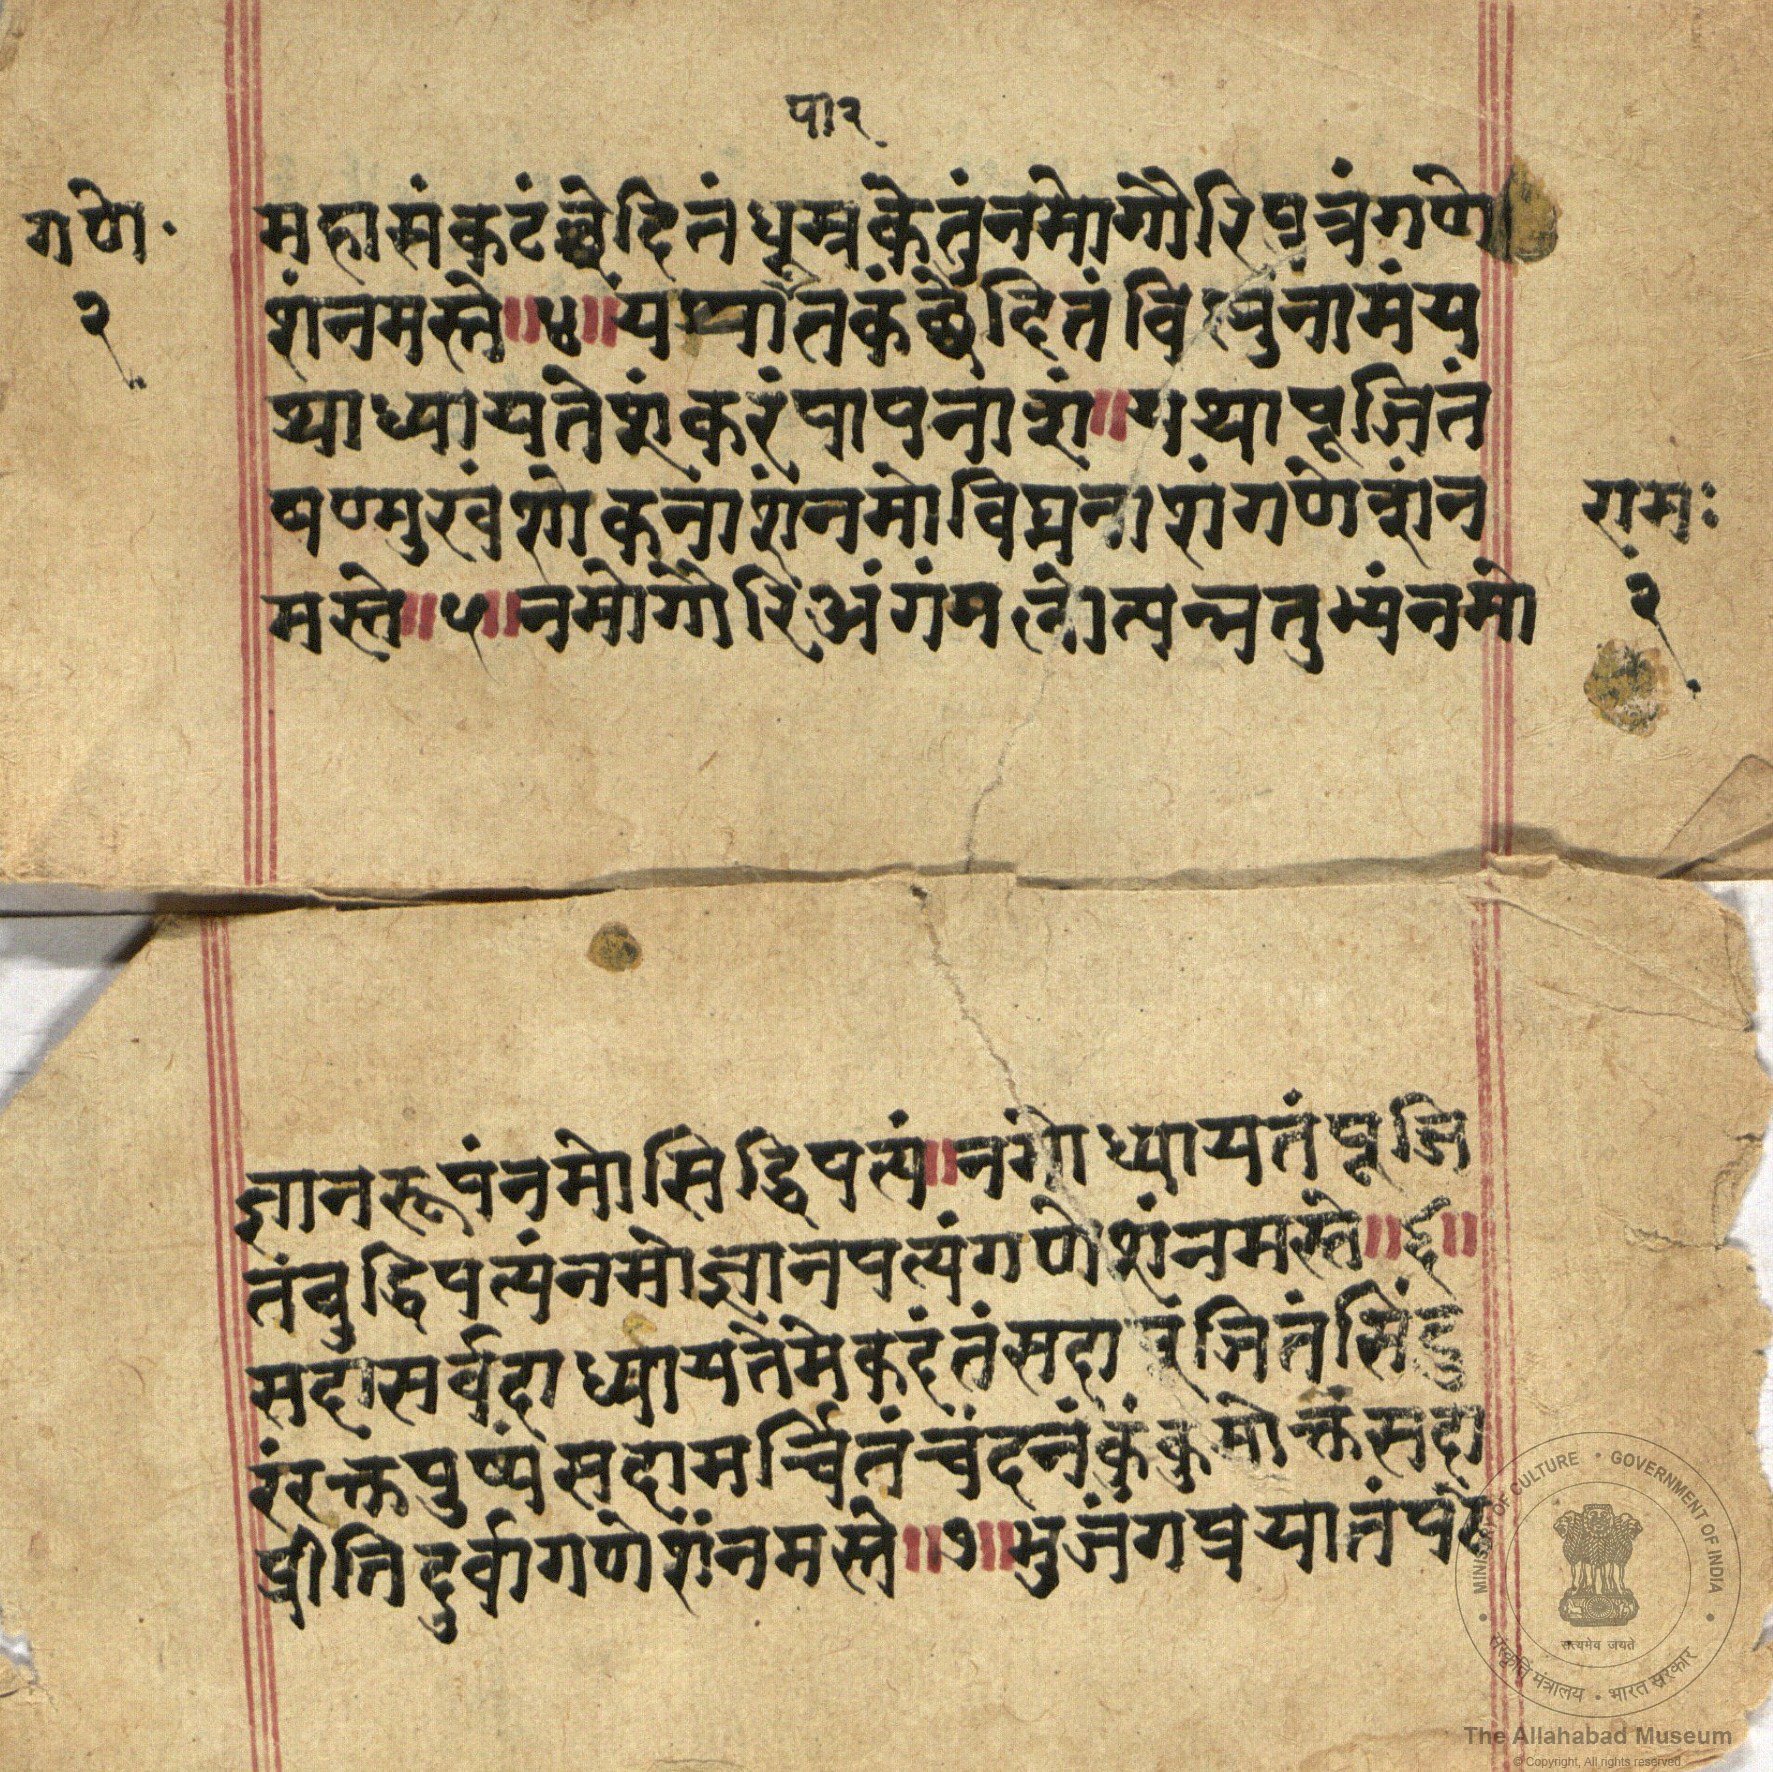 पा२
गणे॰
२
महासंकटंछेदितंधूम्रकेतुंनमोगौरिपुत्रंगणे
शंनमस्ते॥४॥यं तकंछेदितंविघ्ननामंय
थाध्यायतेशंकरंपापनाशं॥यथापूजितं
षण्मुखंशोकनाशंनमोविघ्ननाशंगणेशंन
मस्ते॥५॥नमोगौरिअंगंमलोत्पन्नतुभ्यंनमो
रामः
२
ज्ञानरूपंनमोसिद्धिपत्यं॥नमोध्यायतंपूजि
तंबुद्धिपत्यंनमोज्ञानपत्यंगणेशंनमस्ते॥६॥
सदासर्वदाध्यायतेमेकदंतंसदापूजितंसिंदु
रंरक्तपुष्पंसदामर्चितंचंदनंकुंकुमोक्तंसदा
प्रीतिदुर्वागणेशंनमस्ते॥७॥भुजंगप्रयातंपठे
MINISTRY OF CULTURE • GOVERNMENT OF INDIA
सत्यमेव जयते
संस्कृति मंत्रालय • भारत सरकार
The Allahabad Museum
© Copyright, All rights reserved